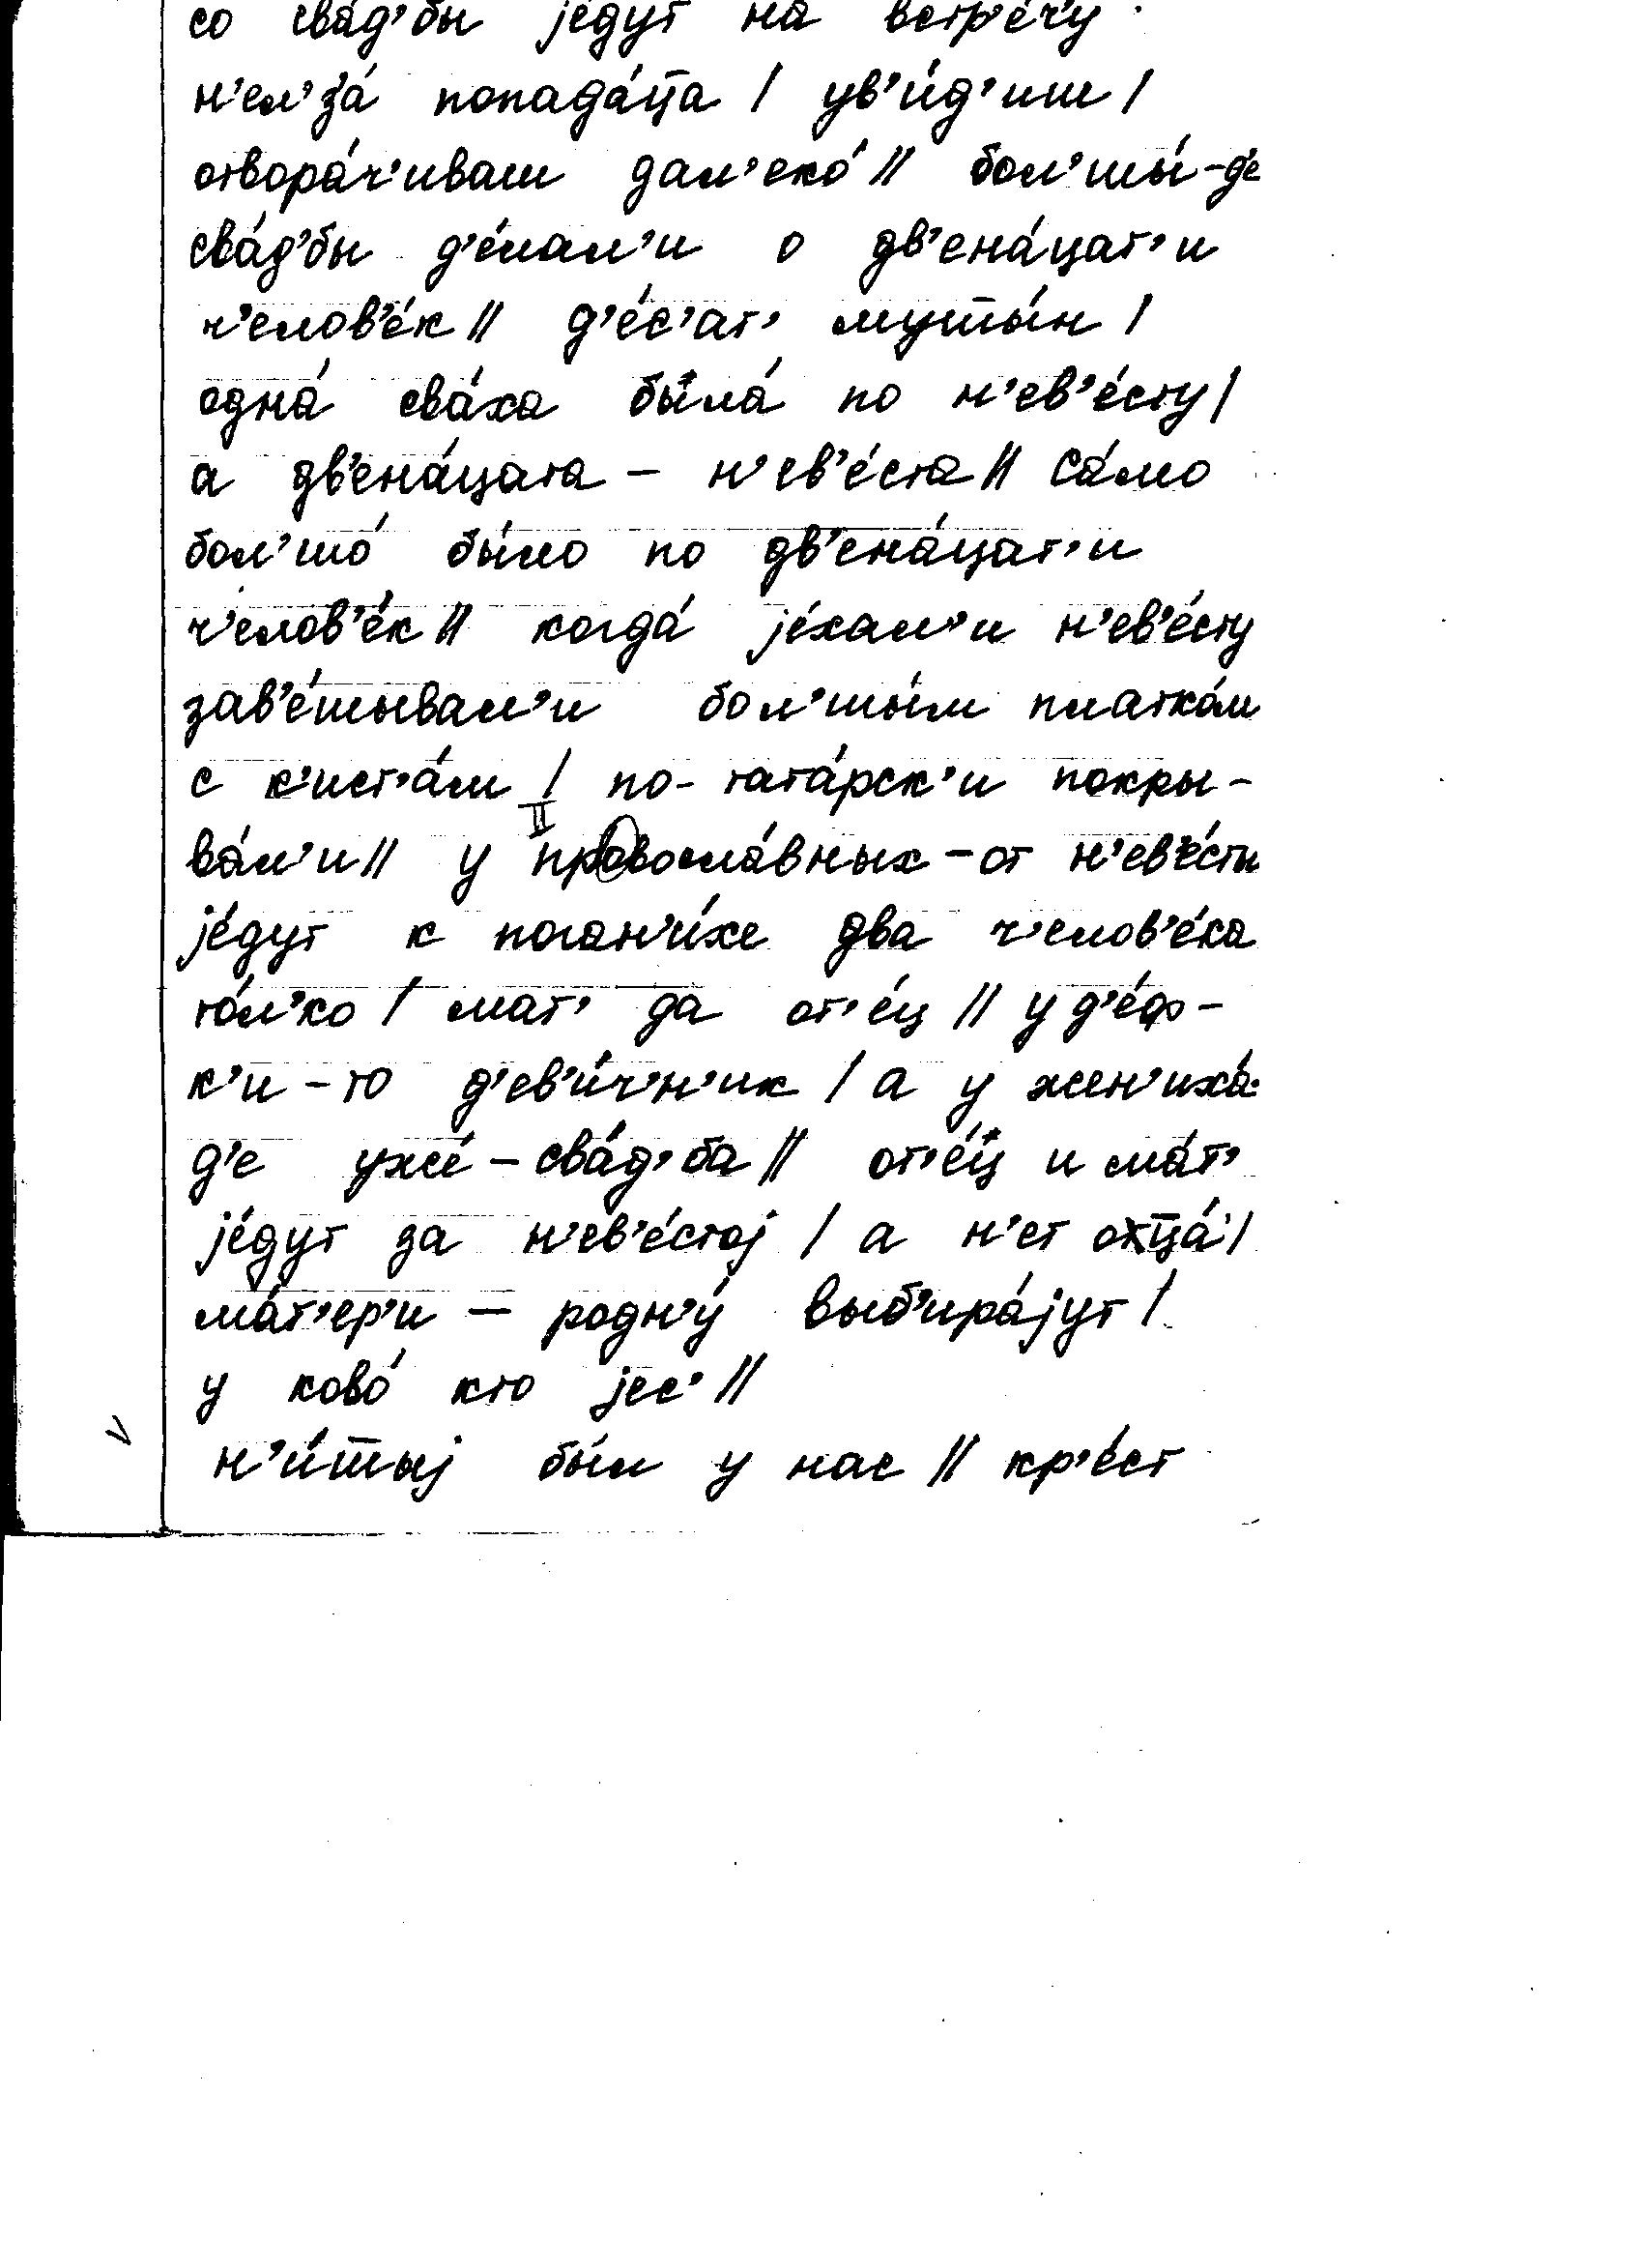 со сва́д’бы је́дут на встр’е́ч’у
н’ел’з’а́ попада́ц̅а / ув’и́д’иш /
отвора́ч’иваш дал’еко́ // бол’шы́-д’е
сва́д’бы д’е́лал’и о дв’ена́цат’и
ч’елов’е́к // д’е́с’ат’ мущ̅ы́н /
одна́ сва́ха была́ по н’ев’е́сту /
а дв’ена́цата – н’ев’е́ста // са́мо
бол’шо́ бы́ло по дв’ена́цат’и
ч’елов’е́к // когда́ је́хал’и н’ев’е́сту
зав’е́шывал’и бол’шы́м платко́м
с к’ист’а́м / по-тата́рск’и покры-
ва́л’и // у правосла́вных-от н’ев’е́сты
је́дут к поган’и́хе два ч’елов’е́ка
то́л’ко / мат’ да от’е́ц // у д’е́ф-
к’и-то д’ев’и́ч’н’ик / а у жен’иха́-
д’е уже́ – сва́д’ба // от’е́ц и ма́т’
је́дут за н’ев’е́стој / а н’ет оц̅а́ /
ма́т’ер’и – родн’у́ выб’ира́јут /
у ково́ кто јес’ //
V н’и́ш̅ыј бы́л у нас // кр’е́ст